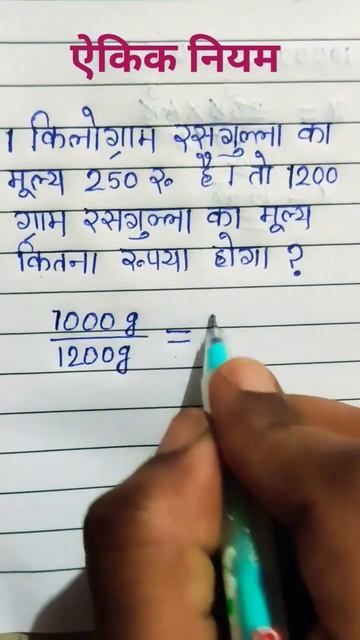 ऐकिक नियम
1 किलोग्राम रसगुल्ला का
मूल्य 250 रु. है। तो 1200
ग्राम रसगुल्ला का मूल्य
कितना रुपया होगा ?
1000 g
1200g
=